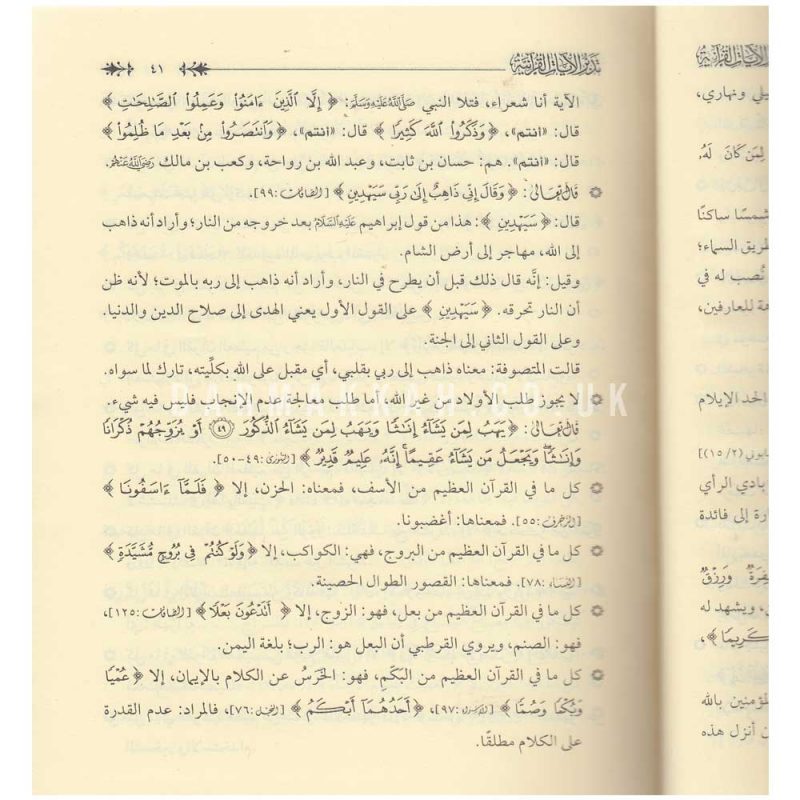 تدبر الآيات القرآنية
٤١
الآية أنا شعراء، فتلا النبي ﷺ: ﴿ إِلَّا الَّذِينَ ءَامَنُوا وَعَمِلُوا الصَّٰلِحَٰتِ ﴾
قال: «أنتم»، ﴿ وَذَكَرُوا اللَّهَ كَثِيرًا ﴾ قال: «أنتم»، ﴿ وَانتَصَرُوا مِنْ بَعْدِ مَا ظُلِمُوا ﴾
قال: «أنتم». هم: حسان بن ثابت، وعبد الله بن رواحة، وكعب بن مالك رضي الله عنهم.
قال تعالى: ﴿ وَقَالَ إِنِّي ذَاهِبٌ إِلَىٰ رَبِّي سَيَهْدِينِ ﴾ [الصافات: ٩٩].
قال: ﴿ سَيَهْدِينِ ﴾: هذا من قول إبراهيم عليه السلام بعد خروجه من النار؛ وأراد أنه ذاهب
إلى الله، مهاجر إلى أرض الشام.
وقيل: إنَّه قال ذلك قبل أن يطرح في النار، وأراد أنه ذاهب إلى ربه بالموت؛ لأنه ظن
أن النار تحرقه. ﴿ سَيَهْدِينِ ﴾ على القول الأول يعني الهدى إلى صلاح الدين والدنيا.
وعلى القول الثاني إلى الجنة.
قالت المتصوفة: معناه ذاهب إلى ربي بقلبي، أي مقبل على الله بكلِّيته، تارك لما سواه.
لا يجوز طلب الأولاد من غير الله، أما طلب معالجة عدم الإنجاب فليس فيه شيء.
DARMAKKAH.CO.UK
قال تعالى: ﴿ يَهَبُ لِمَن يَشَاءُ إِنَاثًا وَيَهَبُ لِمَن يَشَاءُ الذُّكُورَ ۝٤٩ أَوْ يُزَوِّجُهُمْ ذُكْرَانًا
وَإِنَاثًا وَيَجْعَلُ مَن يَشَاءُ عَقِيمًا إِنَّهُ عَلِيمٌ قَدِيرٌ ﴾ [الشورى: ٤٩-٥٠].
كل ما في القرآن العظيم من الأسف، فمعناه: الحزن، إلا ﴿ فَلَمَّا ءَاسَفُونَا ﴾
[الزخرف: ٥٥]. فمعناها: أغضبونا.
كل ما في القرآن العظيم من البروج، فهي: الكواكب، إلا ﴿ وَلَوْ كُنتُمْ فِي بُرُوجٍ مُّشَيَّدَةٍ ﴾
[النساء: ٧٨]. فمعناها: القصور الطوال الحصينة.
كل ما في القرآن العظيم من بعل، فهو: الزوج، إلا ﴿ أَتَدْعُونَ بَعْلًا ﴾ [الصافات: ١٢٥]،
فهو: الصنم، ويروي القرطبي أن البعل هو: الرب؛ بلغة اليمن.
كل ما في القرآن العظيم من البَكَم، فهو: الخَرَسُ عن الكلام بالإيمان، إلا ﴿ عُمْيًا
وَبُكْمًا وَصُمًّا ﴾ [الإسراء: ٩٧]، ﴿ أَحَدُهُمَا أَبْكَمُ ﴾ [النحل: ٧٦]، فالمراد: عدم القدرة
على الكلام مطلقًا.
ونهاري،
لِمَن كَانَ لَهُ
شمسًا ساكنًا
طريق السماء؛
نُصب له في
للعارفين،
الإيلام
(١٥/٢)]
بادي الرأي
إلى فائدة
وَرِزْقٌ
ويشهد له
كَرِيمًا ﴾،
بالله
أنزل هذه